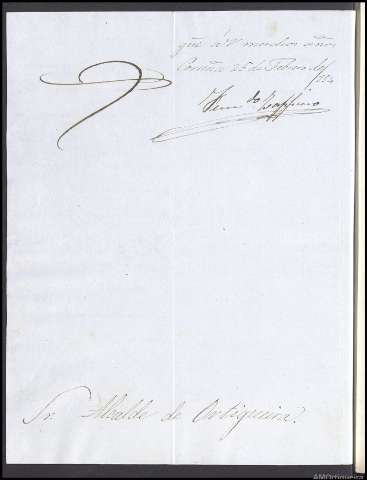 que á V. muchos años
Coruña 25 de Febrero de
Sr. Alcalde de Ortigueira.
AMOrtigueira